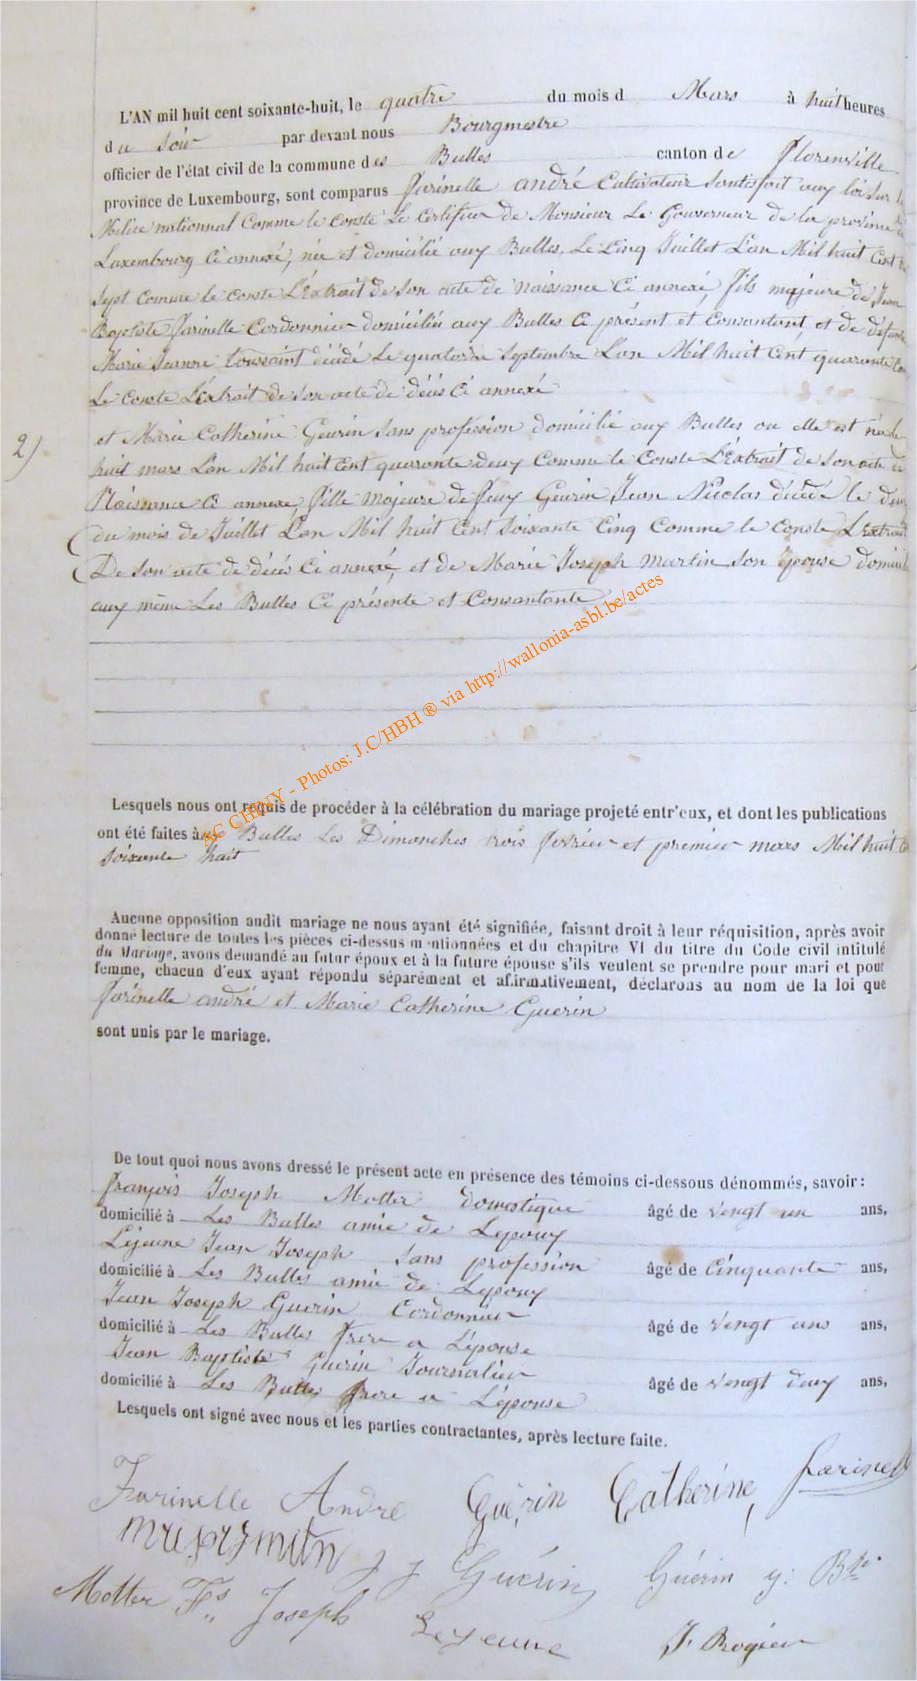 L'AN mil huit cent soixante-huit, le quatre du mois d Mars à huit heures
du Soir par devant nous Bourgmestre
officier de l'état civil de la commune des Bulles canton de Florenville
province de Luxembourg, sont comparus Farinelle andré Cultivateur Sontisfoit aux loi sur la
Milice nationnal Comme le Conste Le Certificat de Monsieur Le Gouverneur de la province de
Luxembourg Ci annexé, née et domicilié aux Bulles, Le Cinq Juillet L'an Mil huit Cent
Sept comme le conste L'Extrait de Son acte de naissance Ci annexé, fils majeure de Jean
Baptiste Farinelle Cordonnier domicilié aux Bulles Ci présent et Consantant, et de défunte
Marie Jeanne Toussaint décédé Le quatorze Septembre L'an Mil huit Cent quarante
Le Conste L'Extrait de Son acte de décès Ci annexé
2)
et Marie Catherine Geurin Sans profession domicilié aux Bulles ou elle est née le
huit mars L'an Mil huit Cent quarante deux Comme le Conste L'Extrait de Son acte de
Naissance Ci annexe, fille Majeure de feux Geurin Jean Nicolas décédé le deux
du mois de Juillet L'an Mil huit Cent Soixante Cinq Comme le Conste L'extrait
De Son acte de décès Ci annexé, et de Marie Joseph Martin Son épouse
aux même Les Bulles Ci présente et Consantante
AC CHINY - Photos: J.C/HBH ® via http://wallonia-asbl.be/actes
Lesquels nous ont requis de procéder à la célébration du mariage projeté entr'eux, et dont les publications
ont été faites à Bulles Les Dimanches trois fevrier et premier mars Mil huit
Soixante huit
Aucune opposition audit mariage ne nous ayant été signifiée, faisant droit à leur réquisition, après avoir
donné lecture de toutes les pièces ci-dessus mentionnées et du chapitre VI du titre du Code civil intitulé
du Mariage, avons demandé au futur époux et à la future épouse s'ils veulent se prendre pour mari et pour
femme, chacun d'eux ayant répondu séparément et affirmativement, déclarons au nom de la loi que
Farinelle andré et Marie Catherine Guerin
sont unis par le mariage.
De tout quoi nous avons dressé le présent acte en présence des témoins ci-dessous dénommés, savoir:
françois Joseph Motter domestique âgé de vingt un ans,
domicilié à Les Bulles amie de Lepoux
Lejeune Jean Joseph Sans profession âgé de Cinquante ans,
domicilié à Les Bulles amie de Lepoux
Jean Joseph Guerin Cordonnier âgé de vingt ans ans,
domicilié à Les Bulles frere a L'épouse
Jean Baptiste Guerin Journalier âgé de vingt deux ans,
domicilié à Les Bulles frere a L'épouse
Lesquels ont signé avec nous et les parties contractantes, après lecture faite.
Farinelle André Guérin Catherine, Farinelle
J J Guérin Guérin J: Bte
Motter Fs Joseph Lejeune